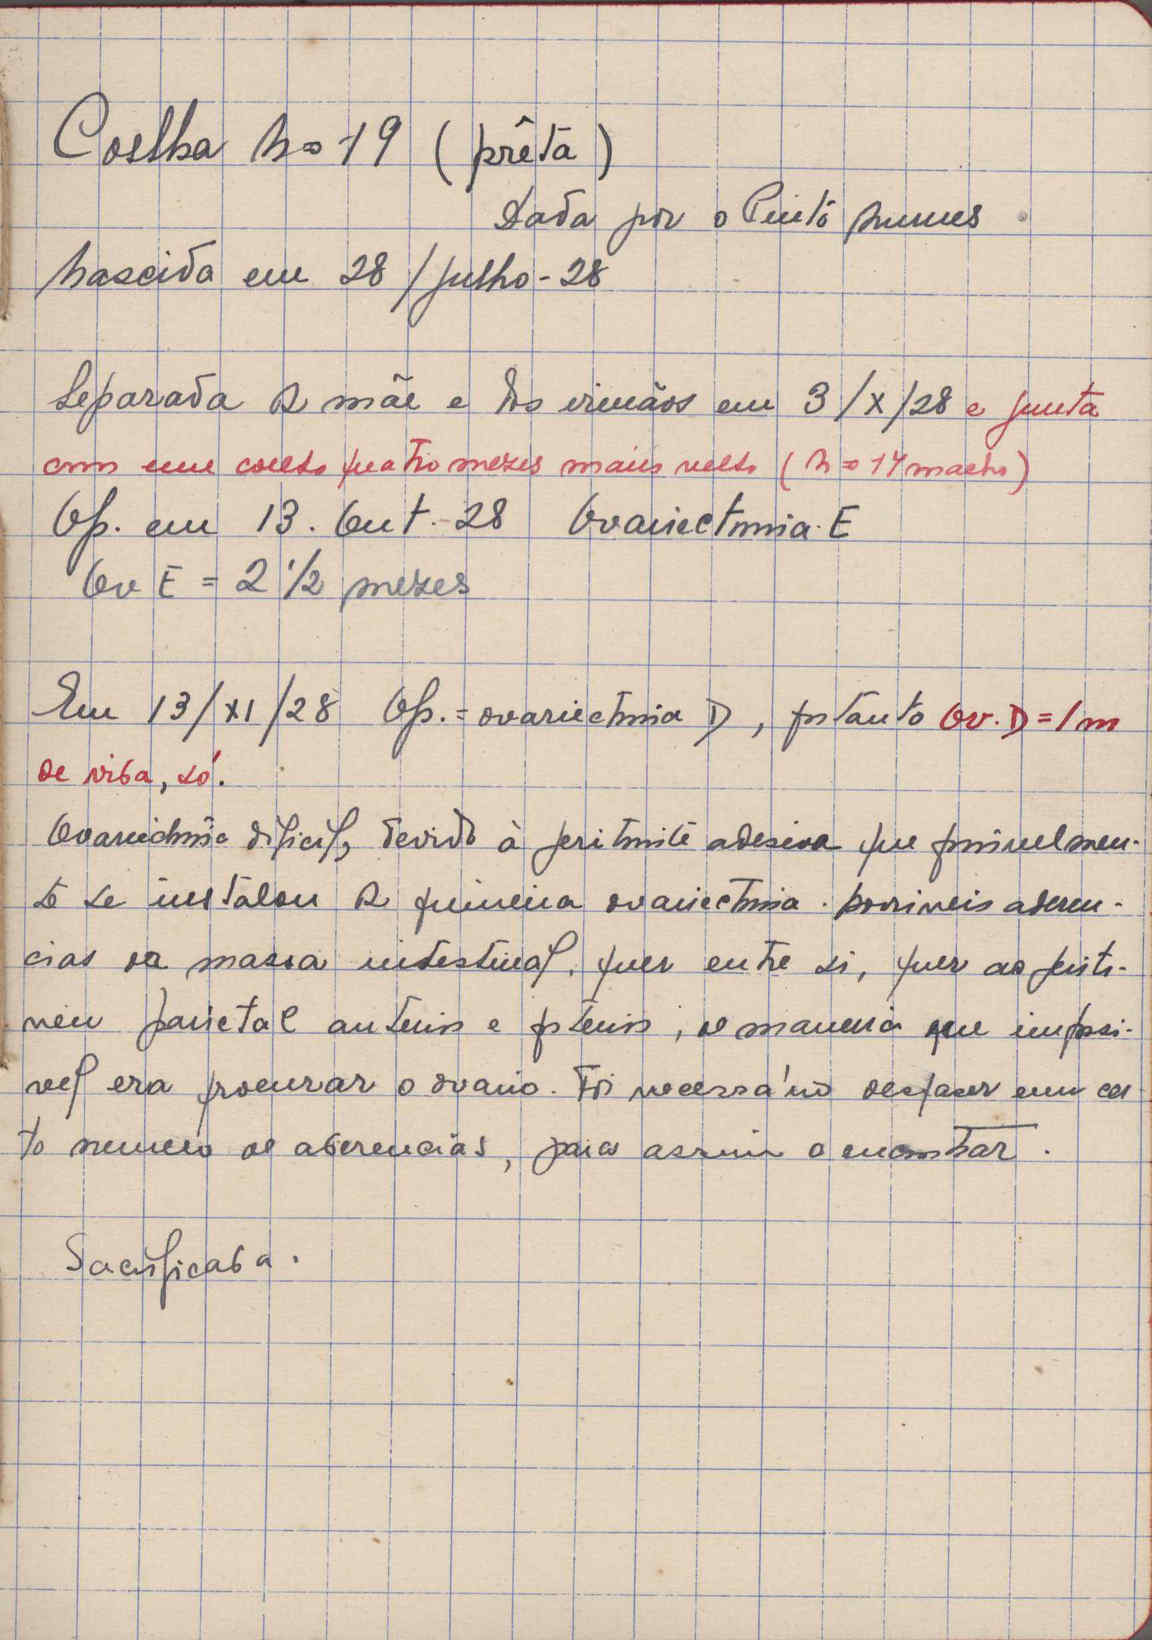 Coelha nº 19 (prêta)
Dada por o Pinto Nunes
Nascida em 28/julho-28
Separada da mãe e dos irmãos em 3/X/28 e junta
com um coelho quatro mezes mais velho (nº 14 macho)
Op. em 13. Out.-28 Ovariectomia. E
Ov E = 2 1/2 mezes
Em 13/XI/28 Op. = ovariectomia D, portanto Ov. D = 1 m
de vida, só.
Ovariectomia dificil, devido à peritonite adesiva que possivelmen-
te se instalou da primeira ovariectomia. Possiveis aderen-
cias da massa intestinal, quer entre si, quer ao perito-
neu parietal anterior e posterior, de maneira que impossi-
vel era procurar o ovario. Foi necessário desfazer um cer
to numero de aderencias, para assim o encontrar.
Sacrificada.